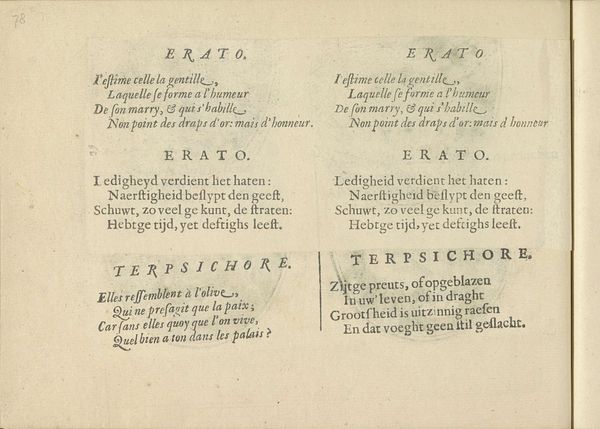 78
ERATO.
I'eſtime celle la gentille,
Laquelle ſe forme a l'humeur
De ſon marry, & qui s'habille
Non point des draps d'or: mais d'honneur.
ERATO.
Ledigheyd verdient het haten:
Naerſtigheid beſlypt den geeſt,
Schuwt, zo veel ge kunt, de ſtraten:
Hebtge tijd, yet deftighs leeſt.
TERPSICHORE.
Elles reſſemblent à l'olive,
Qui ne preſagit que la paix;
Car ſans elles quoy que l'on vive,
Quel bien a ton dans les palais?
ERATO
I eſtime celle la gentille,
Laquelle ſe forme a l'humeur
De ſon marry, & qui s'habille
Non point des draps d'or: mais d honneur
ERATO.
Ledigheid verdient het haten:
Naerſtigheid beſlypt den geeſt,
Schuwt, zo veel ge kunt, de ſtraten:
Hebtge tijd, yet deftighs leeſt.
TERPSICHORE.
Zijtge preuts, of opgeblazen
In uw' leven, of in draght
Grootſheid is uitzinnig raeſen
En dat voeght geen ſtil geſlacht.